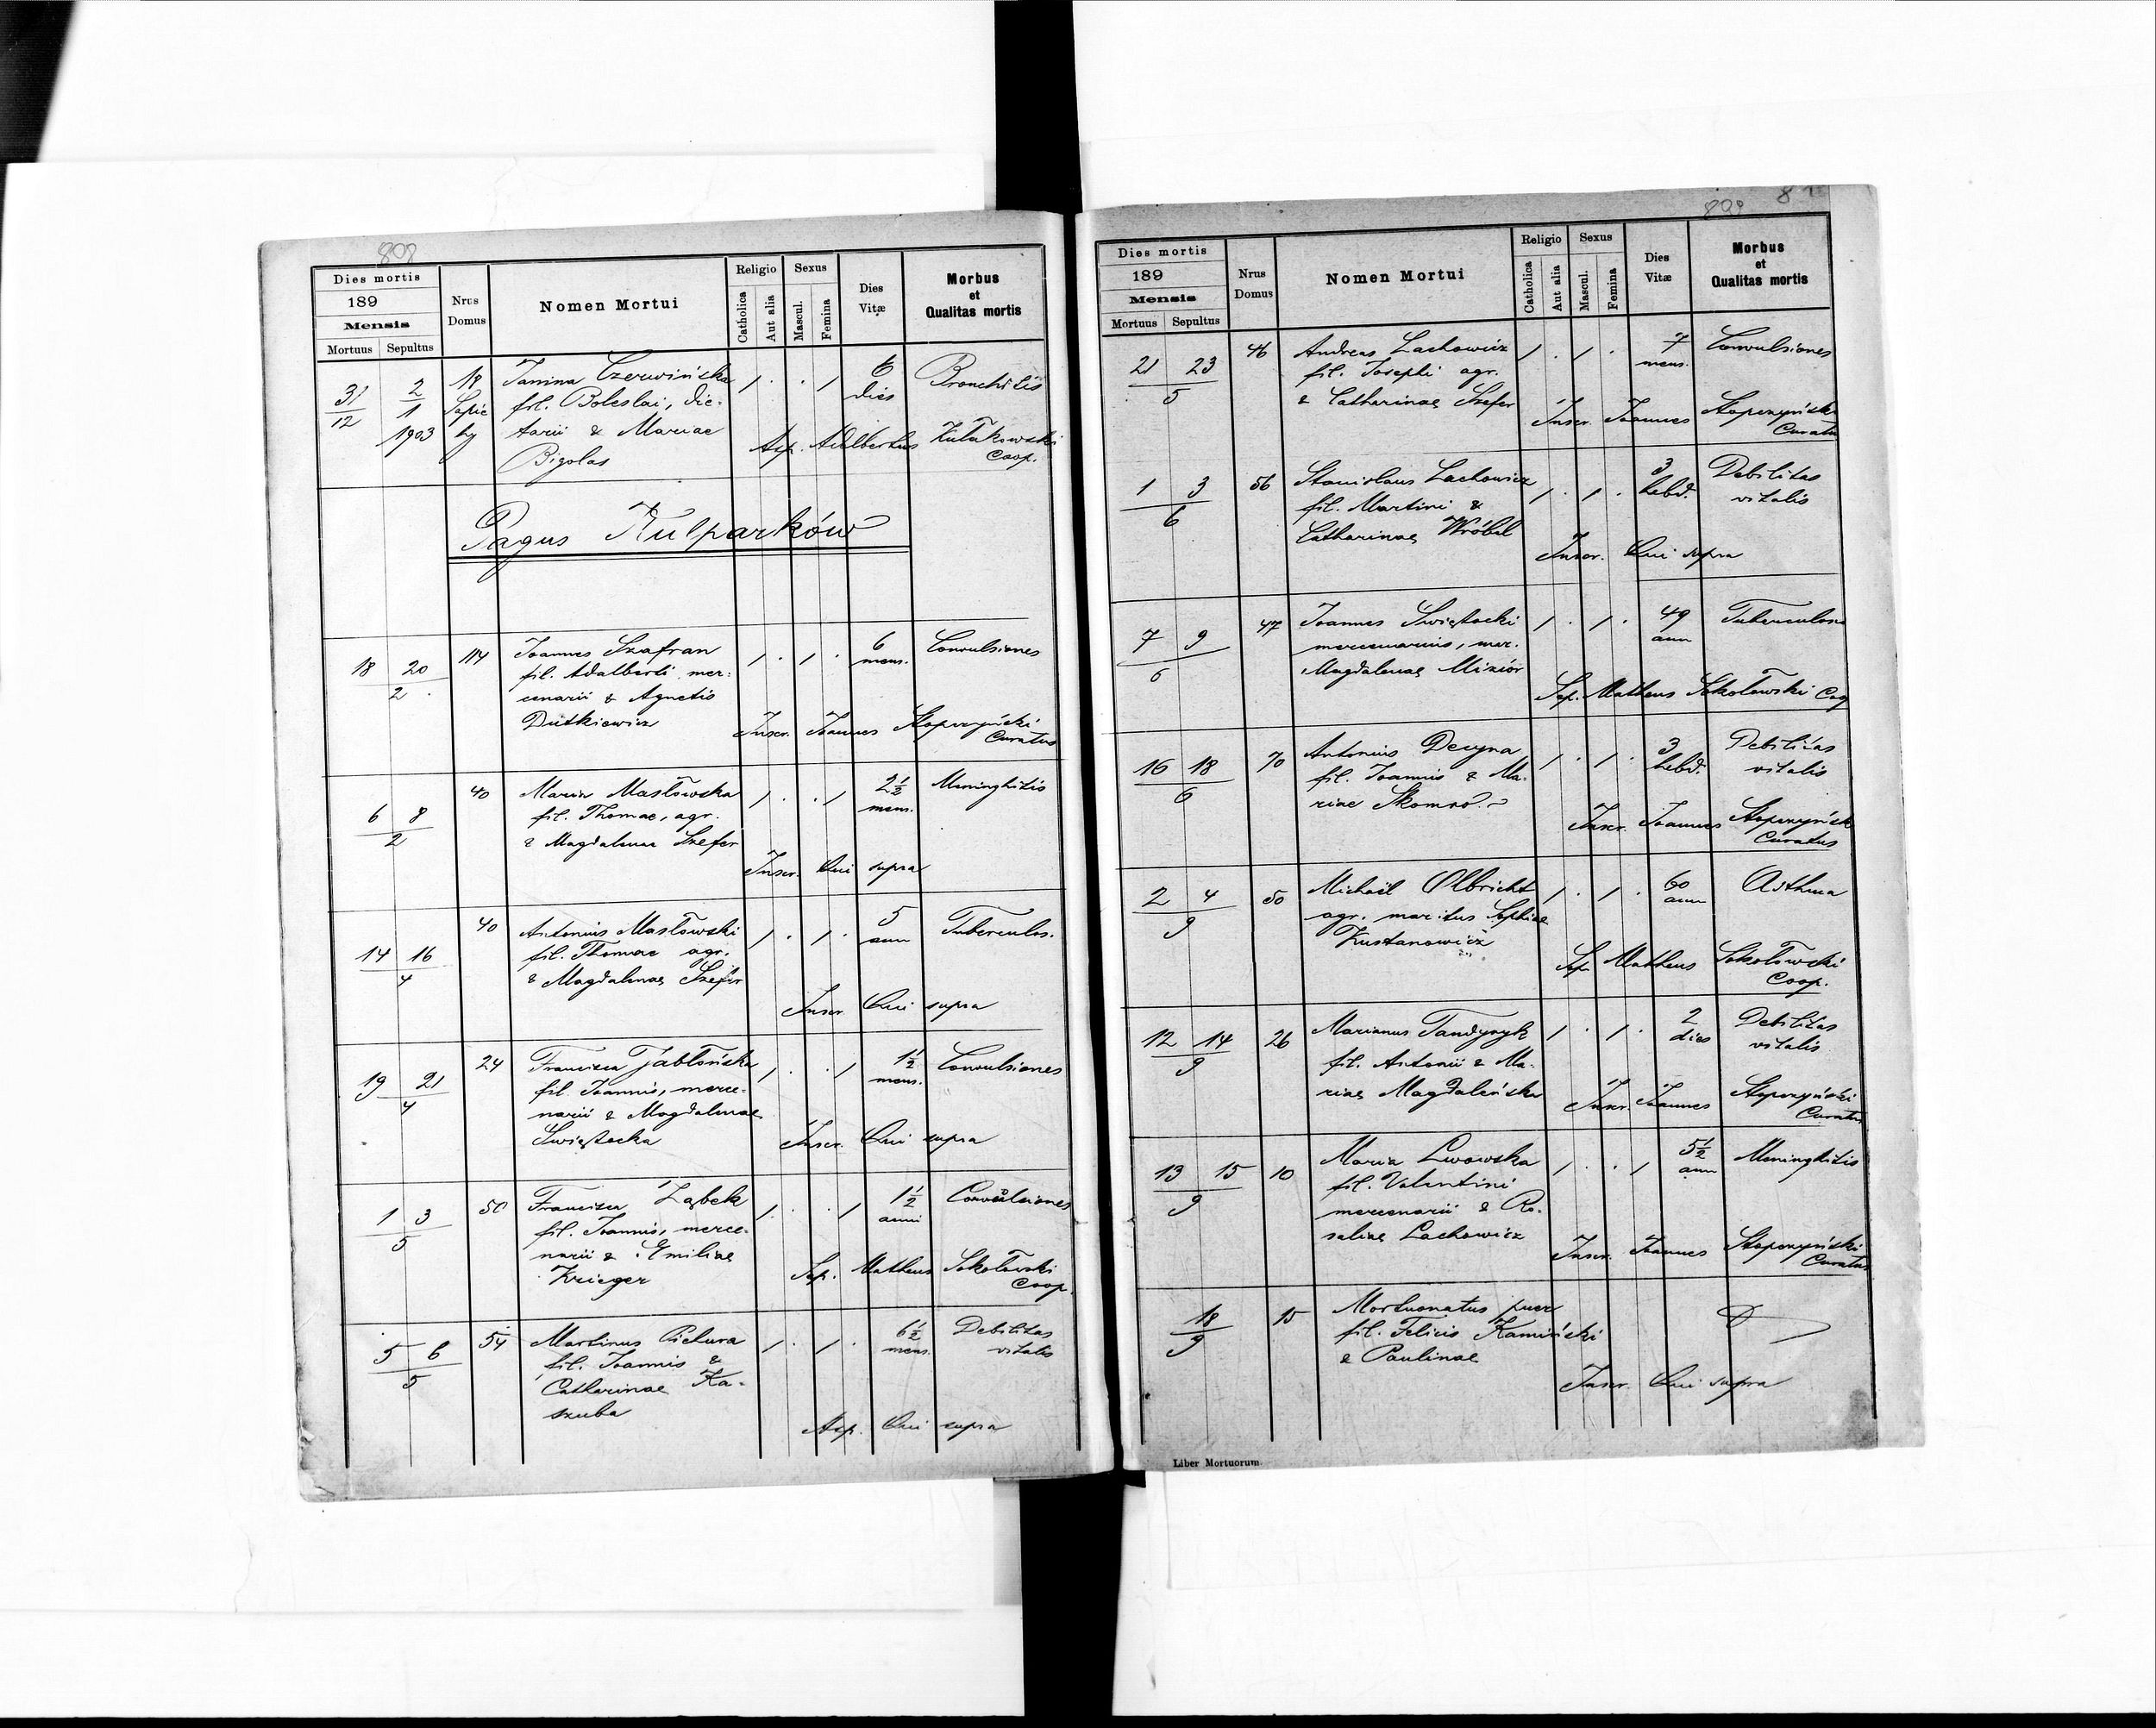 808
Dies mortis
189
Mensis
Mortuus Sepultus
Nrus Domus
Nomen Mortui
Religio
Catholica
Aut alia
Sexus
Mascul.
Femina
Dies Vitæ
Morbus
et
Qualitas mortis
31/12 2/1 1903 18 Sapiehy
Janina Czerwińska / . . / 6 dies Bronchitis
fil. Boleslai, die-
tarii & Mariae
Bigolas
Asp. Adalbertus Kułakowski
Coop.
Pagus Kulparków
18 20/2 114 Joannes Szafran / . / . 6 mens. Convulsiones
fil. Adalberti mer-
cenarii & Agnetis
Dutkiewicz
Inscr. Joannes Stopczyński
Curatus
6 8/2 40 Maria Masłowska / . . / 2½ mens. Meninghitis
fil. Thomae, agr.
& Magdalenae Szefer
Inscr. Qui supra
14 16/4 40 Antonius Masłowski / . / . 5 ann Tuberculos.
fil. Thomae agr.
& Magdalenae Szefer
Inscr Qui supra
19 21/4 24 Francisca Jabłońska / . . / 1½ mens. Convulsiones
fil Joannis, merce-
narii & Magdalenae
Świętocka
Inscr. Qui supra
1 3/5 50 Francisca Ząbek / . . / 1½ anni Convulsiones
fil. Joannis, merce-
narii & Emiliae
Krieger
Sep. Matheus Sokołowski
Coop
5 6/5 54 Martinus Piclura / . / . 6½ mens. Debilitas
vitalis
fil. Joannis &
Catharinae Ka-
szuba
Asp. Qui supra
809 8
Dies mortis
189
Mensis
Mortuus Sepultus
Nrus Domus
Nomen Mortui
Religio
Catholica
Aut alia
Sexus
Mascul.
Femina
Dies Vitæ
Morbus
et
Qualitas mortis
21 23/5 46 Andreas Lachowicz / . / . 7 mens. Convulsiones
fil. Josephi agr.
& Catharinae Szefer
Inscr. Joannes Stopczyński
Curatu
1 3/6 56 Stanislaus Lachowicz / . / . 3 hebd. Debilitas
vitalis
fil. Martini &
Catharinae Wróbel
Inscr. Qui supra
7 9/6 47 Joannes Świętocki / . / . 49 ann Tuberculos
mercenarius, mar.
Magdalenae Mizior
Sep. Matheus Sokołowski Coop
16 18/6 70 Antonius Decyna / . / . 3 hebd. Debilitas
vitalis
fil. Joannis & Ma-
riae Skomro
Inscr. Joannes Stopczyński
Curatus
2 4/9 50 Michaël Olbricht / . / . 60 ann Asthma
agr. maritus Sophiae
Kustanowicz
Sep Matheus Sokołowski
Coop.
12 14/9 26 Marianus Tandyzyk / . / . 2 dies Debilitas
vitalis
fil. Antonii & Ma-
riae Magdaleńska
Inscr. Joannes Stopczyński
Curatus
13 15/9 10 Maria Lwowska / . . / 5½ ann Meninghitis
fil. Valentini
mercenarii & Ro-
saliae Lachowicz
Inscr. Joannes Stopczyński
Curatus
18/9 15 Mortuonatus puer
fil. Felicis Kamiński
& Paulinae
Inscr. Qui supra
Liber Mortuorum.